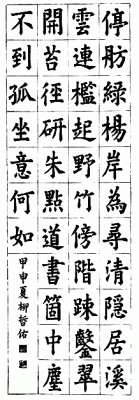 停舫綠楊岸為尋清隱居溪
雲連檻起野竹傍階踈鑿翠
開苔徑研朱點道書箇中塵
不到孤坐意何如
甲申夏柳哲佑